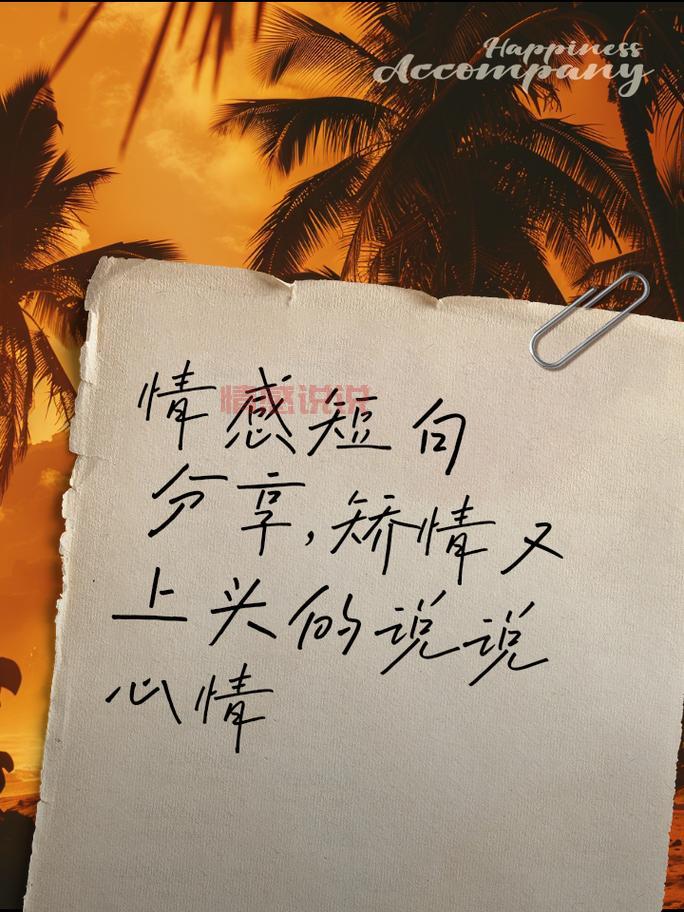 Happiness
Accompany
情感说说
情感短句
分享,矫情又
上头的说说
心情